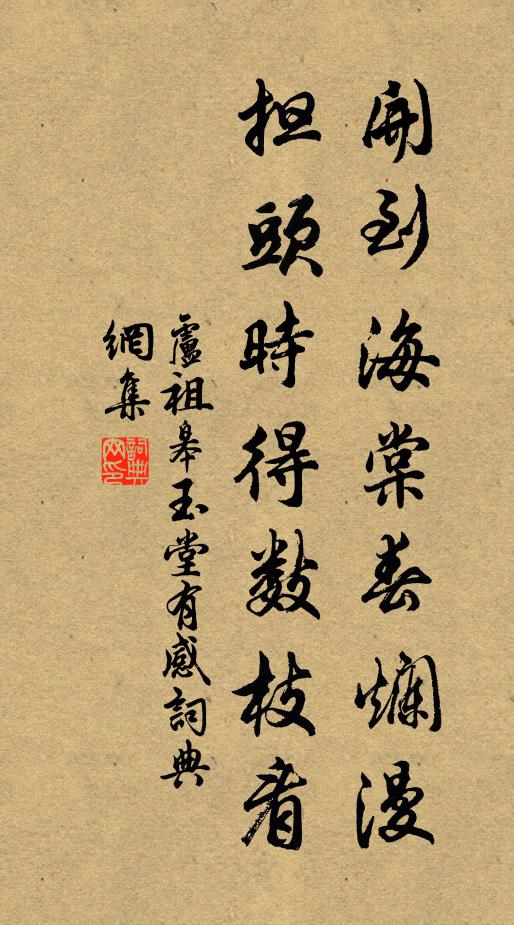 開到海棠春爛漫
担頭時得数枝看
盧祖皋玉堂有感詞典
網集
詞典網印